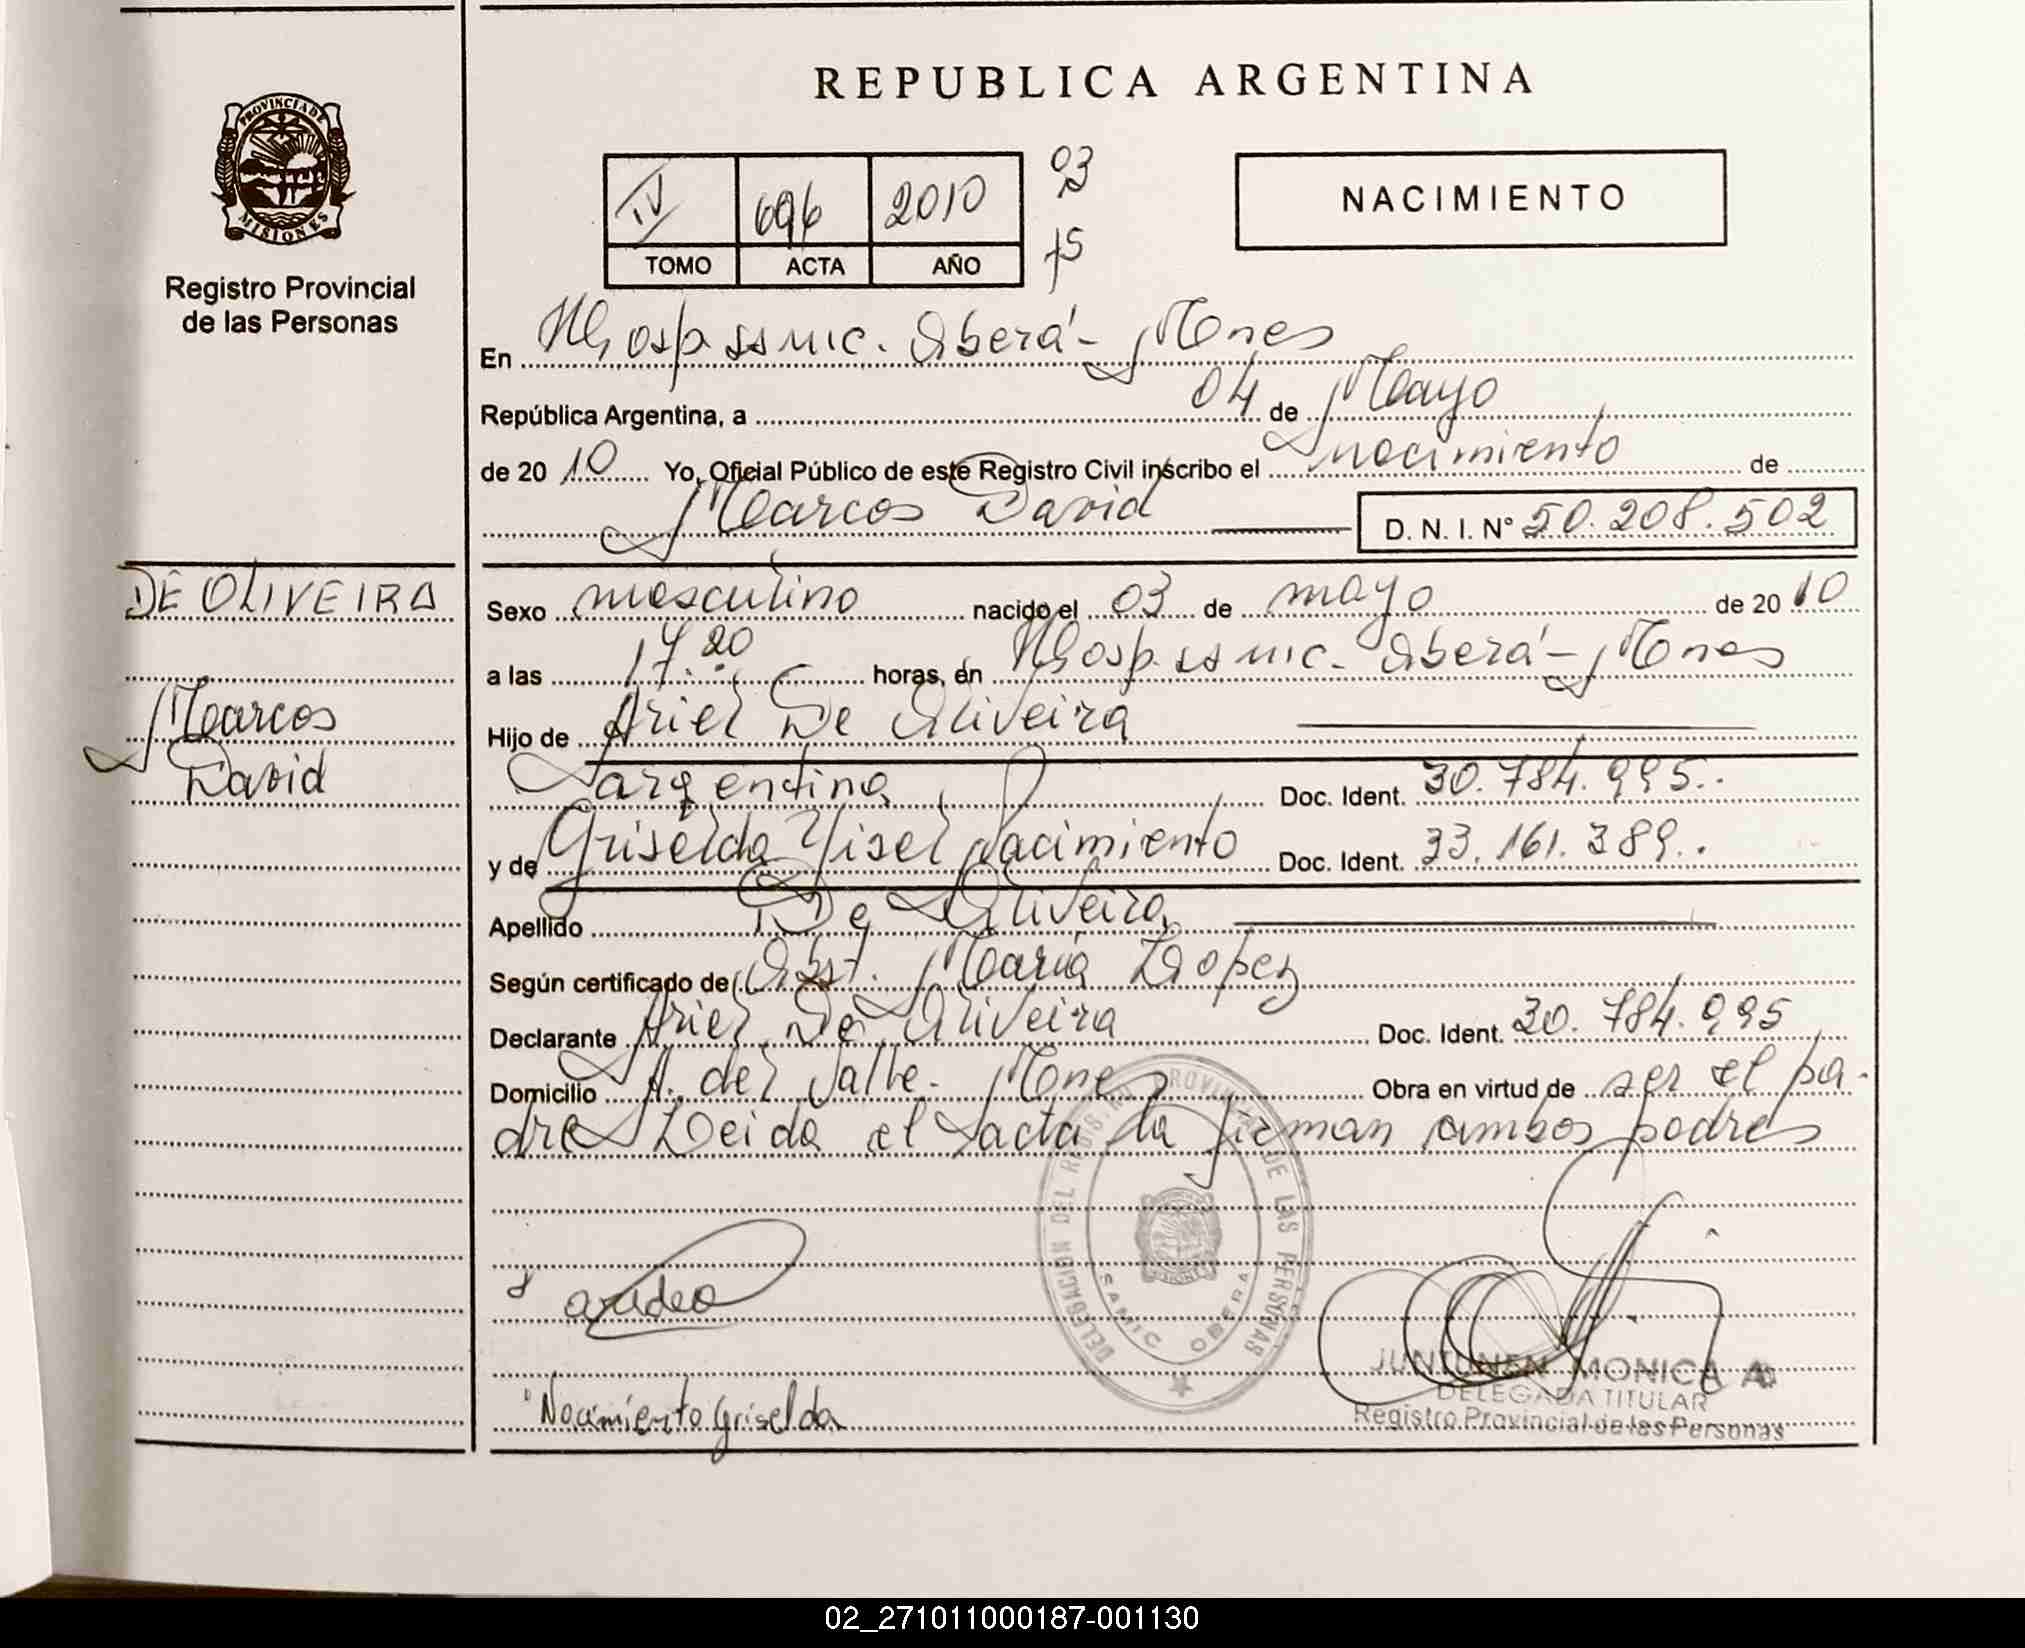 PROVINCIA DE
MISIONES
Registro Provincial
de las Personas
DE OLIVEIRA
Marcos
David
REPUBLICA ARGENTINA
IV 696 2010 03
TOMO ACTA AÑO 75
NACIMIENTO
En Hosp. SSMIC. Oberá - Mnes
República Argentina, a 04 de Mayo
de 2010 Yo, Oficial Público de este Registro Civil inscribo el nacimiento de
Marcos David D. N. I. N° 50.208.502
Sexo masculino nacido el 03 de mayo de 2010
a las 17.20 horas, en Hosp. SSMIC. Oberá - Mnes
Hijo de Ariel De Oliveira
argentina Doc. Ident. 30.784.995..
y de Griselda Yisel Nacimiento Doc. Ident. 33.161.389..
Apellido De Oliveira
Según certificado de Obst. María Lopez
Declarante Ariel De Oliveira Doc. Ident. 30.784.995
Domicilio A. del Valle. Mnes Obra en virtud de ser el pa-
dre Leida el acta la firman ambos padres
DELEGACION DEL REGISTRO PROVINCIAL DE LAS PERSONAS
SAMIC OBERA
Nacimiento Griselda
JUNTUNEN MONICA A
DELEGADA TITULAR
Registro Provincial de las Personas
02_271011000187-001130